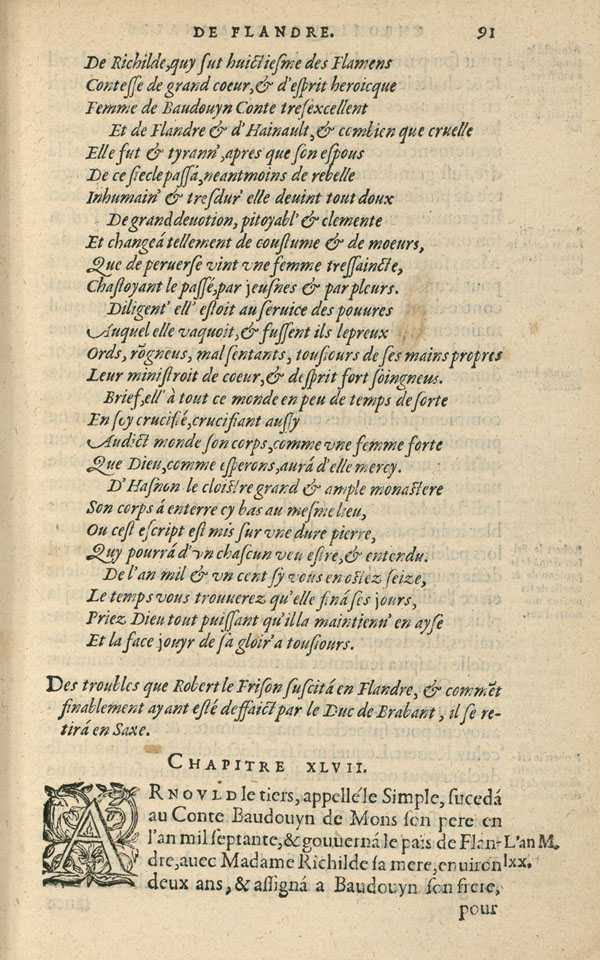 DE FLANDRE. 91
De Richilde, quy fut huictiesme des Flamens
Contesse de grand coeur, & d'esprit heroicque
Femme de Baudouyn Conte tresexcellent
Et de Flandre & d'Hainault, & combien que cruelle
Elle fut & tyrann', apres que son espous
De ce siecle passá, neantmoins de rebelle
Inhumain' & tresdur' elle deuint tout doux
De grand deuotion, pitoyabl' & clemente
Et changeá tellement de coustume & de moeurs,
Que de peruerse vint vne femme tressaincte,
Chastoyant le passé, par jeusnes & par pleurs.
Diligent' ell' estoit au seruice des pouures
Auquel elle vaquoit, & fussent ils lepreux
Ords, rõgneus, mal sentants, tousiours de ses mains propres
Leur ministroit de coeur, & desprit fort soingneus.
Brief, ell' à tout ce monde en peu de temps de sorte
En soy crucifié, crucifiant aussy
Audict monde son corps, comme vne femme forte
Que Dieu, comme esperons, aurá d'elle mercy.
D'Hasnon le cloistre grand & ample monastere
Son corps á enterre cy bas au mesme lieu,
Ou cest escript est mis sur vne dure pierre,
Quy pourrá d'vn chascun veu estre, & entendu.
De l'an mil & vn cent sy vous en ostez seize,
Le temps vous trouuerez qu'elle finá ses jours,
Priez Dieu tout puissant qu'il la maintienn' en ayse
Et la face jouyr de sa gloir' a tousiours.
Des troubles que Robert le Frison suscitá en Flandre, & commẽt
finablement ayant esté deffaict par le Duc de Brabant, il se re-
tirá en Saxe.
CHAPITRE XLVII.
ARNOVLD le tiers, appellé le Simple, sucedá
au Conte Baudouyn de Mons son pere en
l'an mil septante, & gouuerná le païs de Flan- L'an M.
dre, auec Madame Richilde sa mere, enuiron lxx.
deux ans, & assigná a Baudouyn son frere,
pour